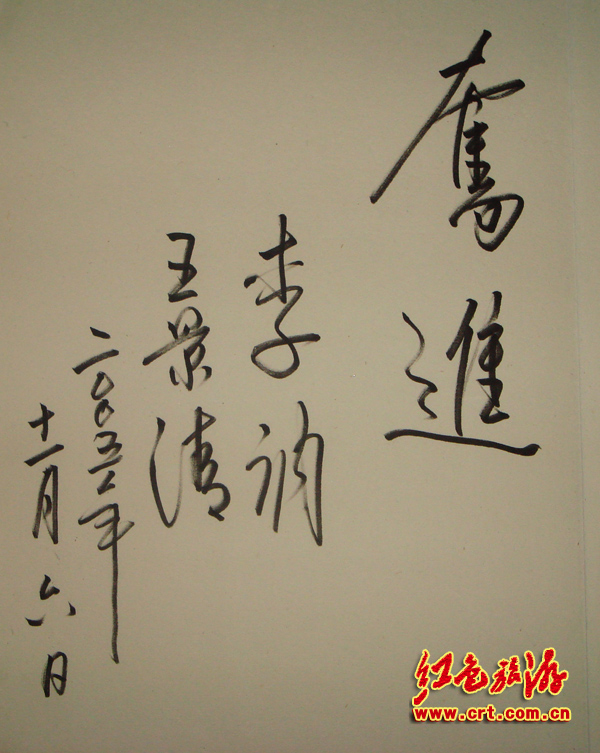 奮進
李讷
王景清
二〇〇五年
十一月六日
红色旅游
www.crt.com.cn